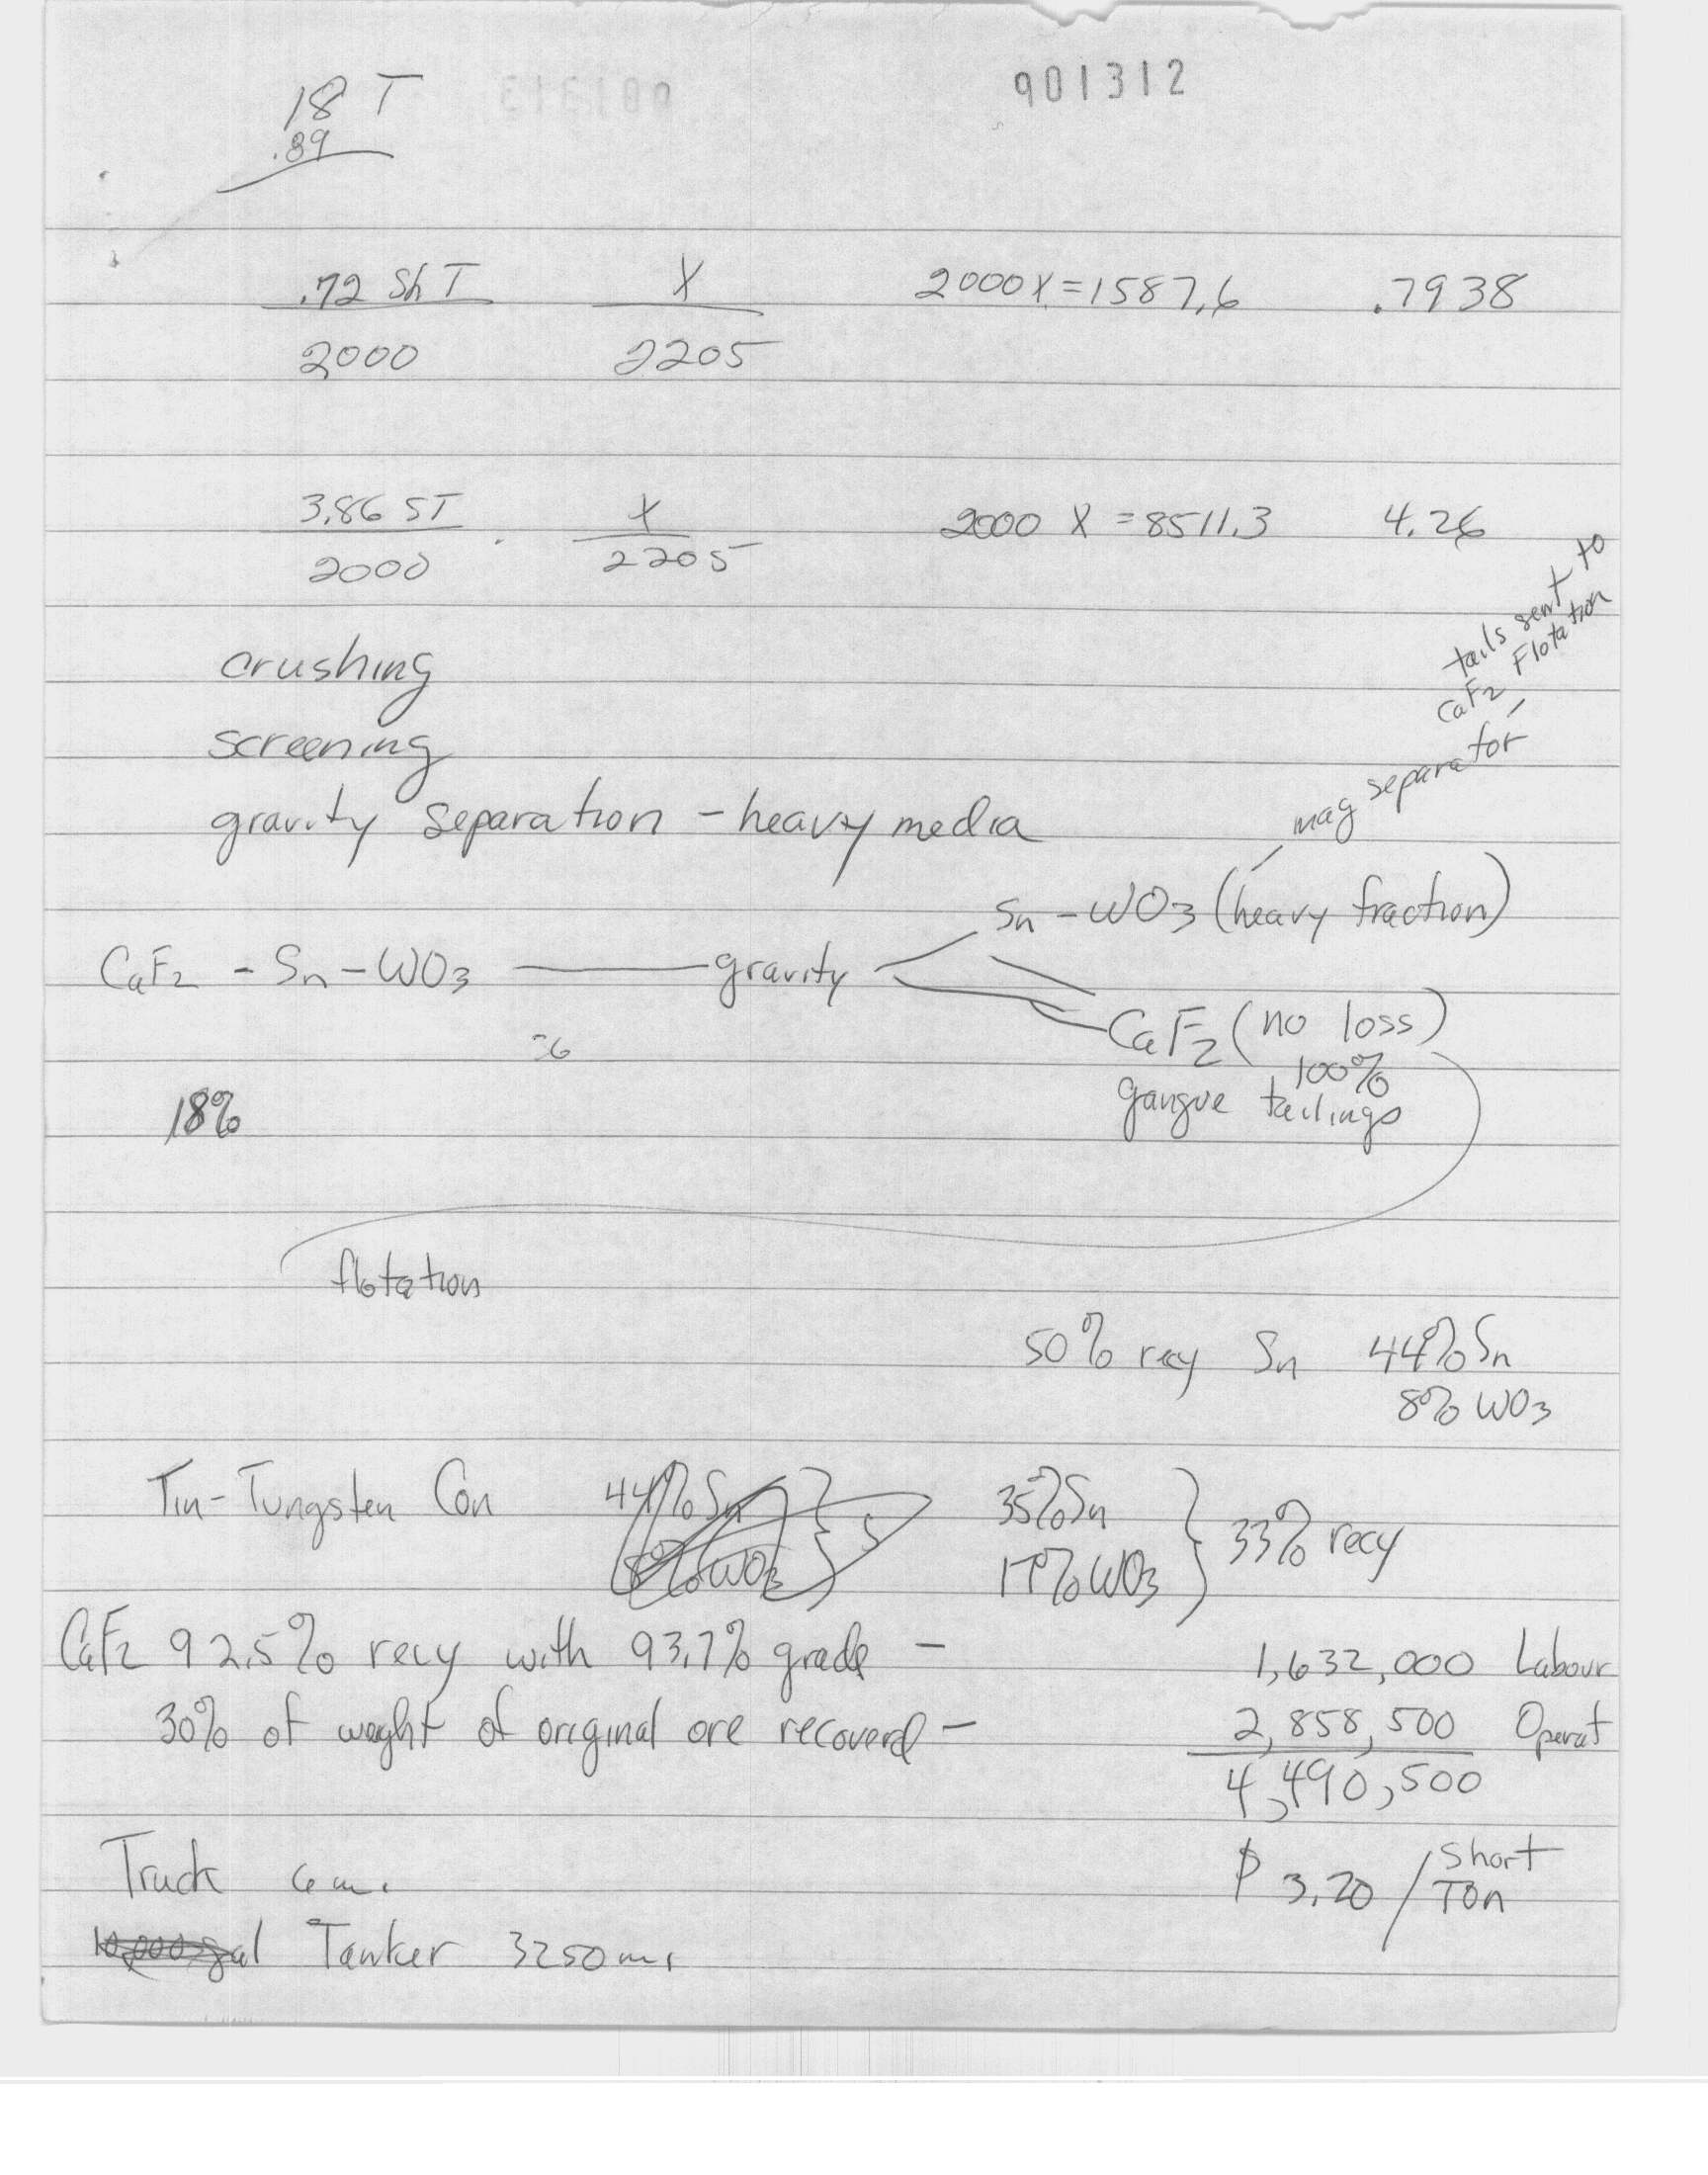 901312
18 T
.89
.72 Sh T X 2000X = 1587.6 .7938
2000 2205
3.86 ST X 2000 X = 8511.3 4.26
2000 2205
tails sent to
CaF2 Flotation
mag separator
crushing
screening
gravity separation - heavy media
Sn - WO3 (heavy fraction)
CaF2 - Sn - WO3 gravity
CaF2 (no loss)
100%
gangue tailings
18%
flotation
50% recy Sn 44% Sn
8% WO3
Tin-Tungsten Con 44% Sn 35% Sn
8% WO3 17% WO3 33% recy
CaF2 92.5% recy with 93.7% grade - 1,632,000 Labour
30% of weght of original ore recoverd - 2,858,500 Operat
4,490,500
Truck $ 3.20 / Short Ton
10,000 gal Tanker 3250 m.